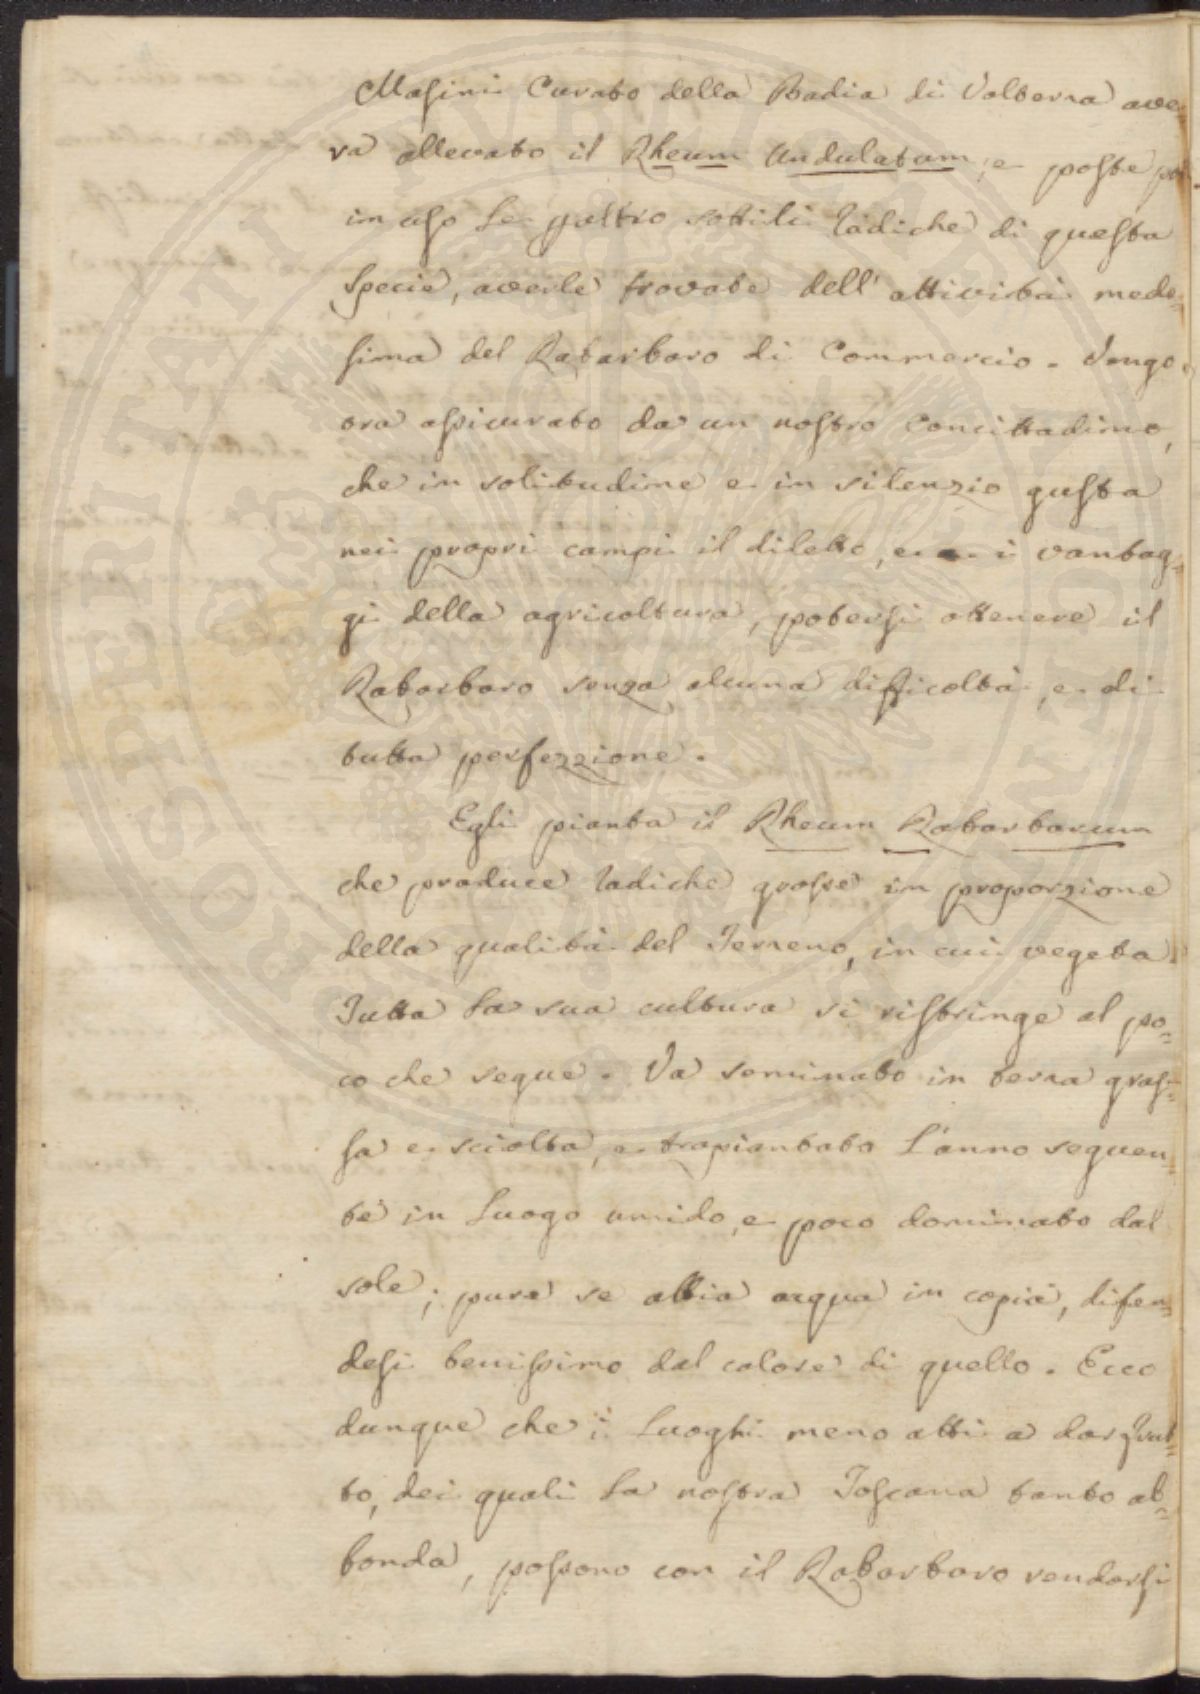 Masini Curato della Badia di Volterra ave-
va allevato il Rheum Undulatum, e poste poi
in uso le peltro sottili radiche di questa
specie, averle trovate dell'attività mede=
sima del Rabarbaro di Commercio. Vengo
ora assicurato da un nostro Concittadino,
che in solitudine e in silenzio gusta
nei propri campi il diletto, e i vantag=
gi della agricoltura, potersi ottenere il
Rabarbaro senza alcuna difficoltà, e di
tutta perfezzione.
Egli pianta il Rheum Rabarbarum
che produce radiche grosse in proporzione
della qualità del Terreno, in cui vegeta.
Tutta la sua cultura si ristringe al po=
co che segue. Va seminato in terra gras=
sa e sciolta, e trapiantato l'anno seguen=
te in luogo umido, e poco dominato dal
sole; pure se abbia acqua in copia, difen=
desi benissimo dal calore di quello. Ecco
dunque che i luoghi meno atti a dar frut=
to, dei quali la nostra Toscana tanto ab=
bonda, possono con il Rabarbaro rendersi
PROSPERITATI PUBLICAE AUGENDAE